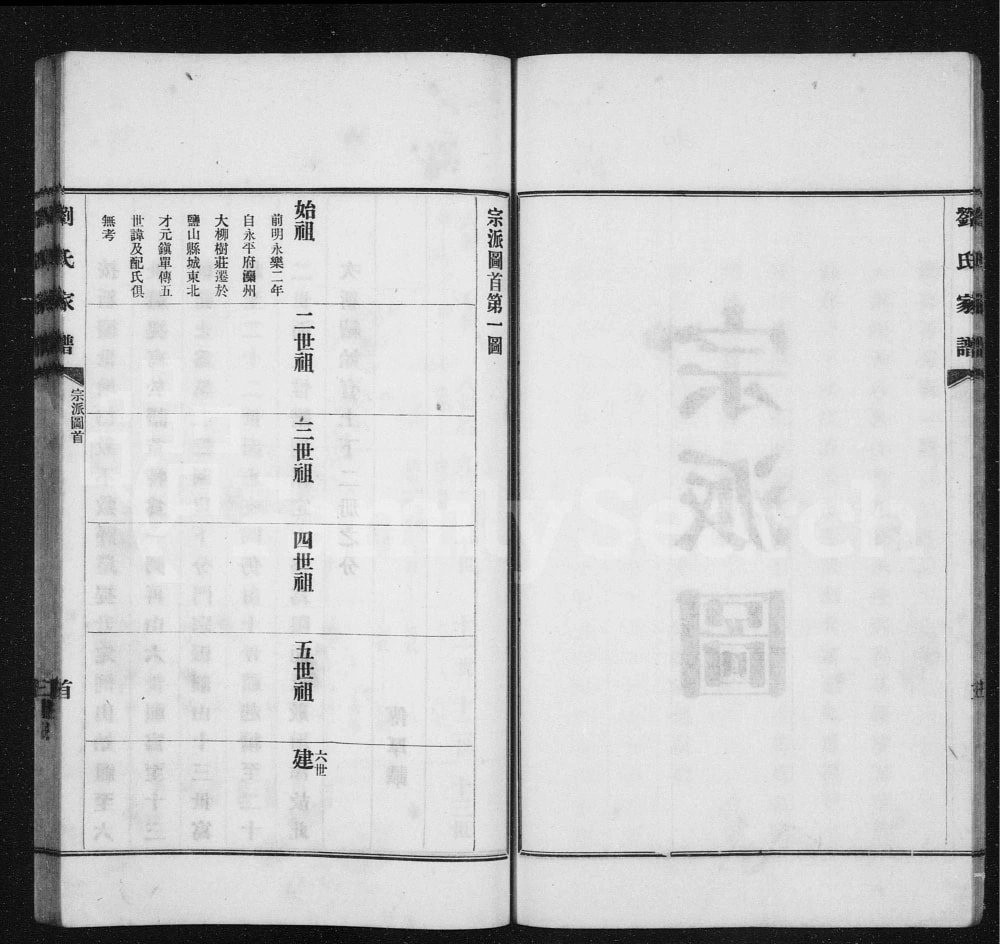 劉氏家譜
宗派圖首第一圖
始祖
前明永樂二年
自永平府灤州
大柳樹莊遷於
鹽山縣城東北
才元鎭單傳五
世諱及配氏俱
無考
二世祖
三世祖
四世祖
五世祖
六世
建
劉氏家譜
宗派圖首
首
FamilySearch